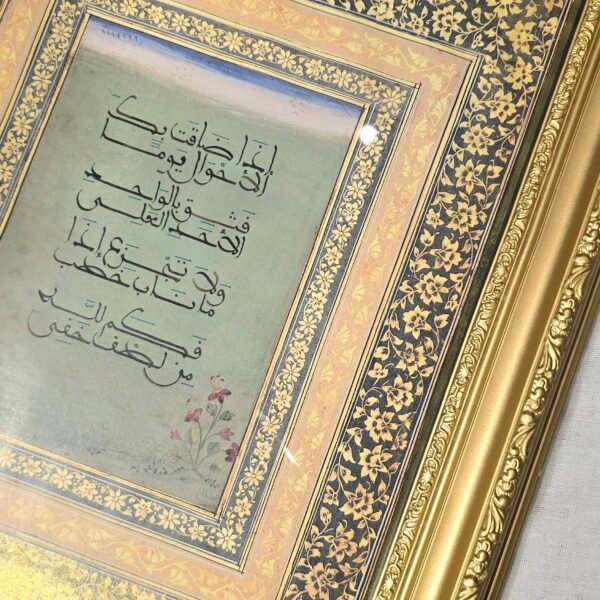 إِذَا ضَاقَت بِكَ
الأَحْوَالُ يَومًا
فَثِق بِالوَاحِدِ
الأَحَدِ العَلِيِّ
وَلا تَجْزَع إِذَا
مَا نَابَ خَطْبٌ
فَكَم لِلَّهِ
مِن لُطْفٍ خَفِيّ